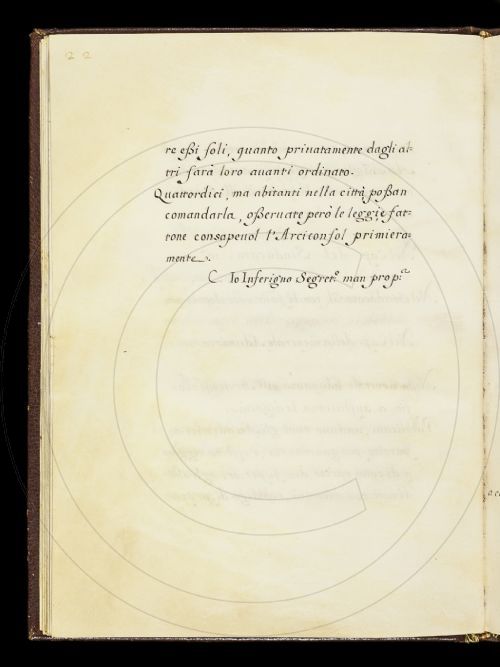 22
re eßi soli, quanto priuatamente dagli al-
tri sarà loro auanti ordinato.
Quattordici, ma abitanti nella città poßan
comandarla, oßeruate però le leggi, e fat-
tone consapeuol l'Arciconsol primiera-
mente.
Io Inferigno Segret.º man prop.ª